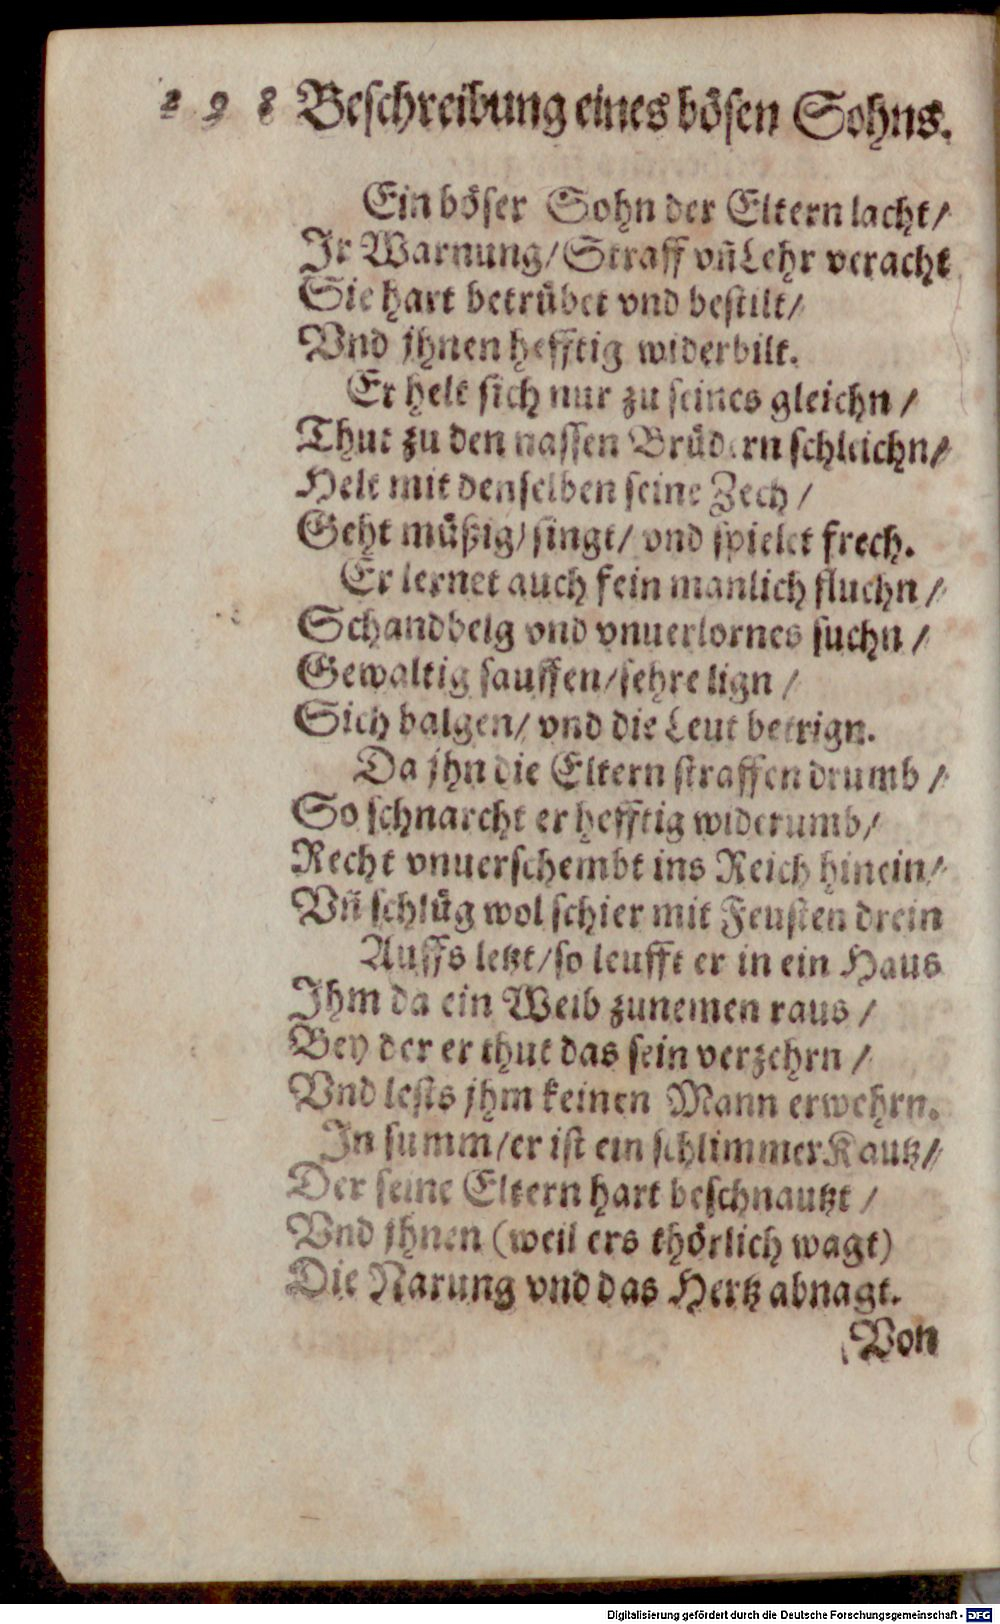 298 Beschreibung eines bösen Sohns.
Ein böser Sohn der Eltern lacht/
Ir Warnung/ Straff vñ Lehr veracht
Sie hart betrübet vnd bestilt/
Vnd jhnen hefftig widerbilt.
Er helt sich nur zu seines gleichn /
Thut zu den nassen Brüdern schleichn/
Helt mit denselben seine Zech /
Geht müßig/ singt/ vnd spielet frech.
Er lernet auch fein manlich fluchn /
Schandbelg vnd vnuerlornes suchn /
Gewaltig sauffen/ sehre lign /
Sich balgen/ vnd die Leut betrign.
Da jhn die Eltern straffen drumb /
So schnarcht er hefftig widerumb/
Recht vnuerschembt ins Reich hinein/
Vñ schlüg wol schier mit Feusten drein
Auffs letzt/ so leufft er in ein Haus
Ihm da ein Weib zunemen raus /
Bey der er thut das sein verzehrn /
Vnd lests jhm keinen Mann erwehrn.
In summ/ er ist ein schlimmer Kautz/
Der seine Eltern hart beschnautzt /
Vnd jhnen (weil ers thörlich wagt)
Die Narung vnd das Hertz abnagt.
Von
Digitalisierung gefördert durch die Deutsche Forschungsgemeinschaft - DFG